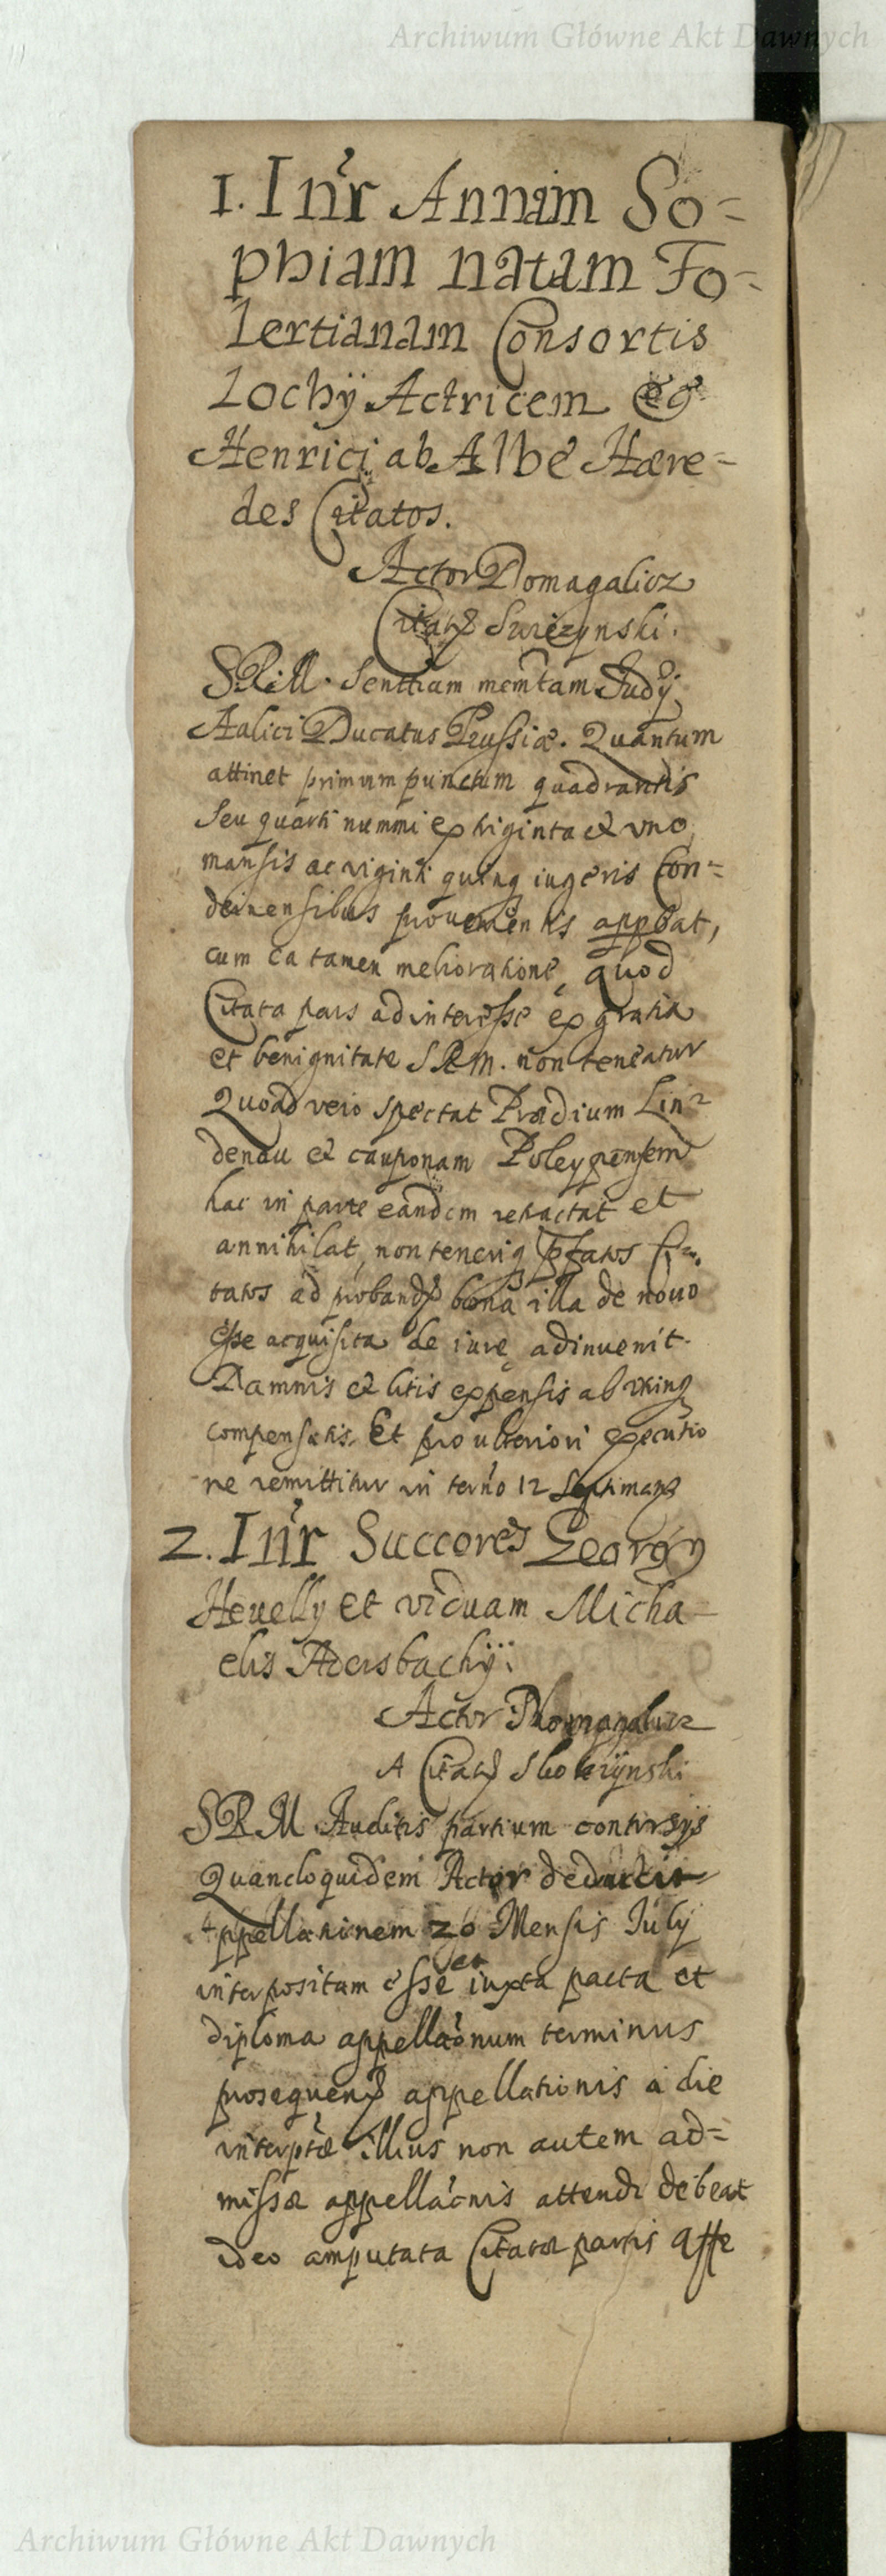 Archiwum Główne Akt Dawnych
1. Int̃r Annam So=
phiam natam Fo=
lertianam Consortis
Lochÿ Actricem &
Henrici ab Albe Hære=
des Citatos.
Actor Domagalicz
Citatꝫ Swiezynski.
SRM. Senttiam memtam Judÿ
Aulici Ducatus Prussiæ. Quantum
attinet primum punctum quadrantis
seu quarti nummi ex triginta et uno
mansis ac viginti quinqꝫ iugeris Con=
deinensibus provenientis appbat,
cum ea tamen melioratione, quod
Citata pars ad interesse ex gratia
et benignitate SRM. non teneatur
Quoad vero spectat Prædium Lin=
denau et cauponam Poleypensem
hac in parte eandem retractat et
annihilat, non teneriqꝫ pfatos Ci=
tatos ad probandꝫ bona illa de novo
esse acquisita de iure adinvenit.
Damnis et litis expensis ab utrinqꝫ
compensatis. Et pro ulteriori executio
ne remittitur in terno 12 Septimanꝫ
2. Int̃r Succores Georgÿ
Hevelly et viduam Micha=
elis Adersbachÿ.
Actor Domagalicz
A Citatꝫ
SRM Auditis partium contrsÿs
Quandoquidem Actor deducit
Appellationem 20 Mensis Julÿ
interpositam esse et iuxta pacta et
diploma appellaonum terminus
prosequenꝫ appellationis a die
interptæ illius non autem ad=
missæ appellaonis attendi debeat
ideo amputata Citatæ partis affe
Archiwum Główne Akt Dawnych